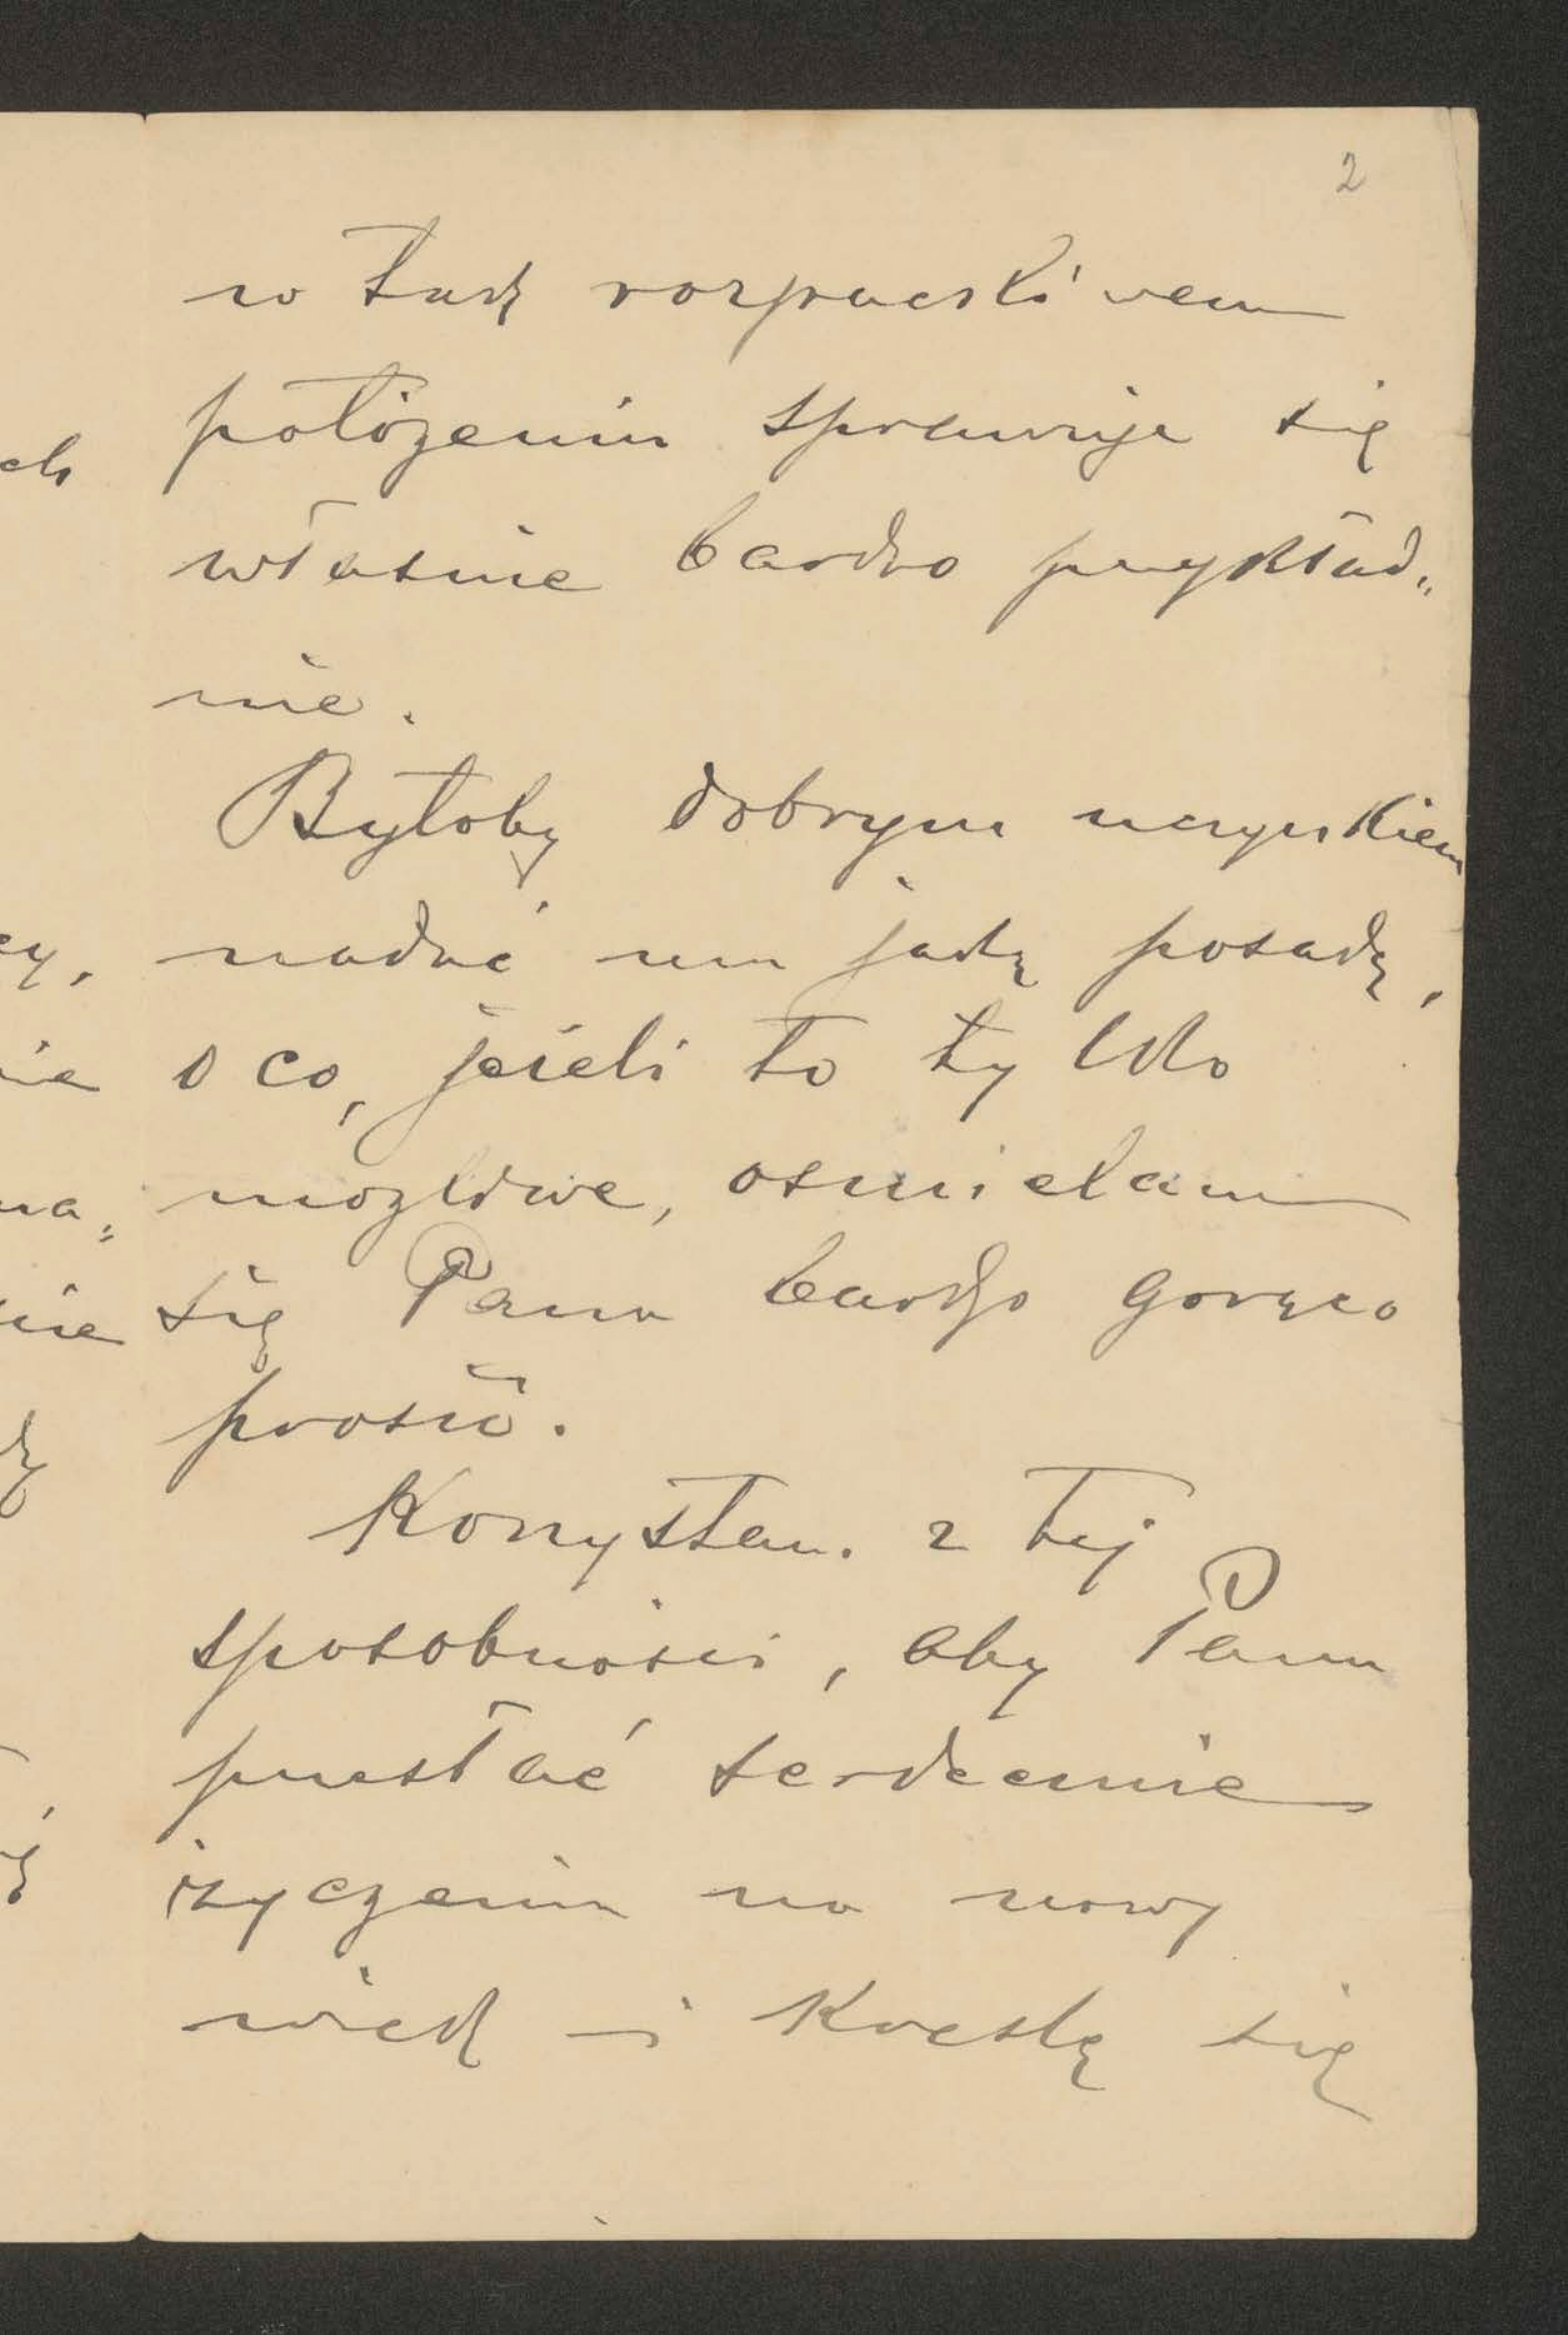 2
w tak rozpaczliwem
położeniu sprawuje się
właśnie bardzo przykład„
nie.
Byłoby dobrym uczynkiem
nadać mu jaką posadę,
o co, jeżeli to tylko
możliwe, ośmielam
się Pana bardzo gorąco
prosić.
Korzystam z tej
sposobności, aby Panu
przesłać serdeczne
życzenia na nowy
wiek i kreślę się